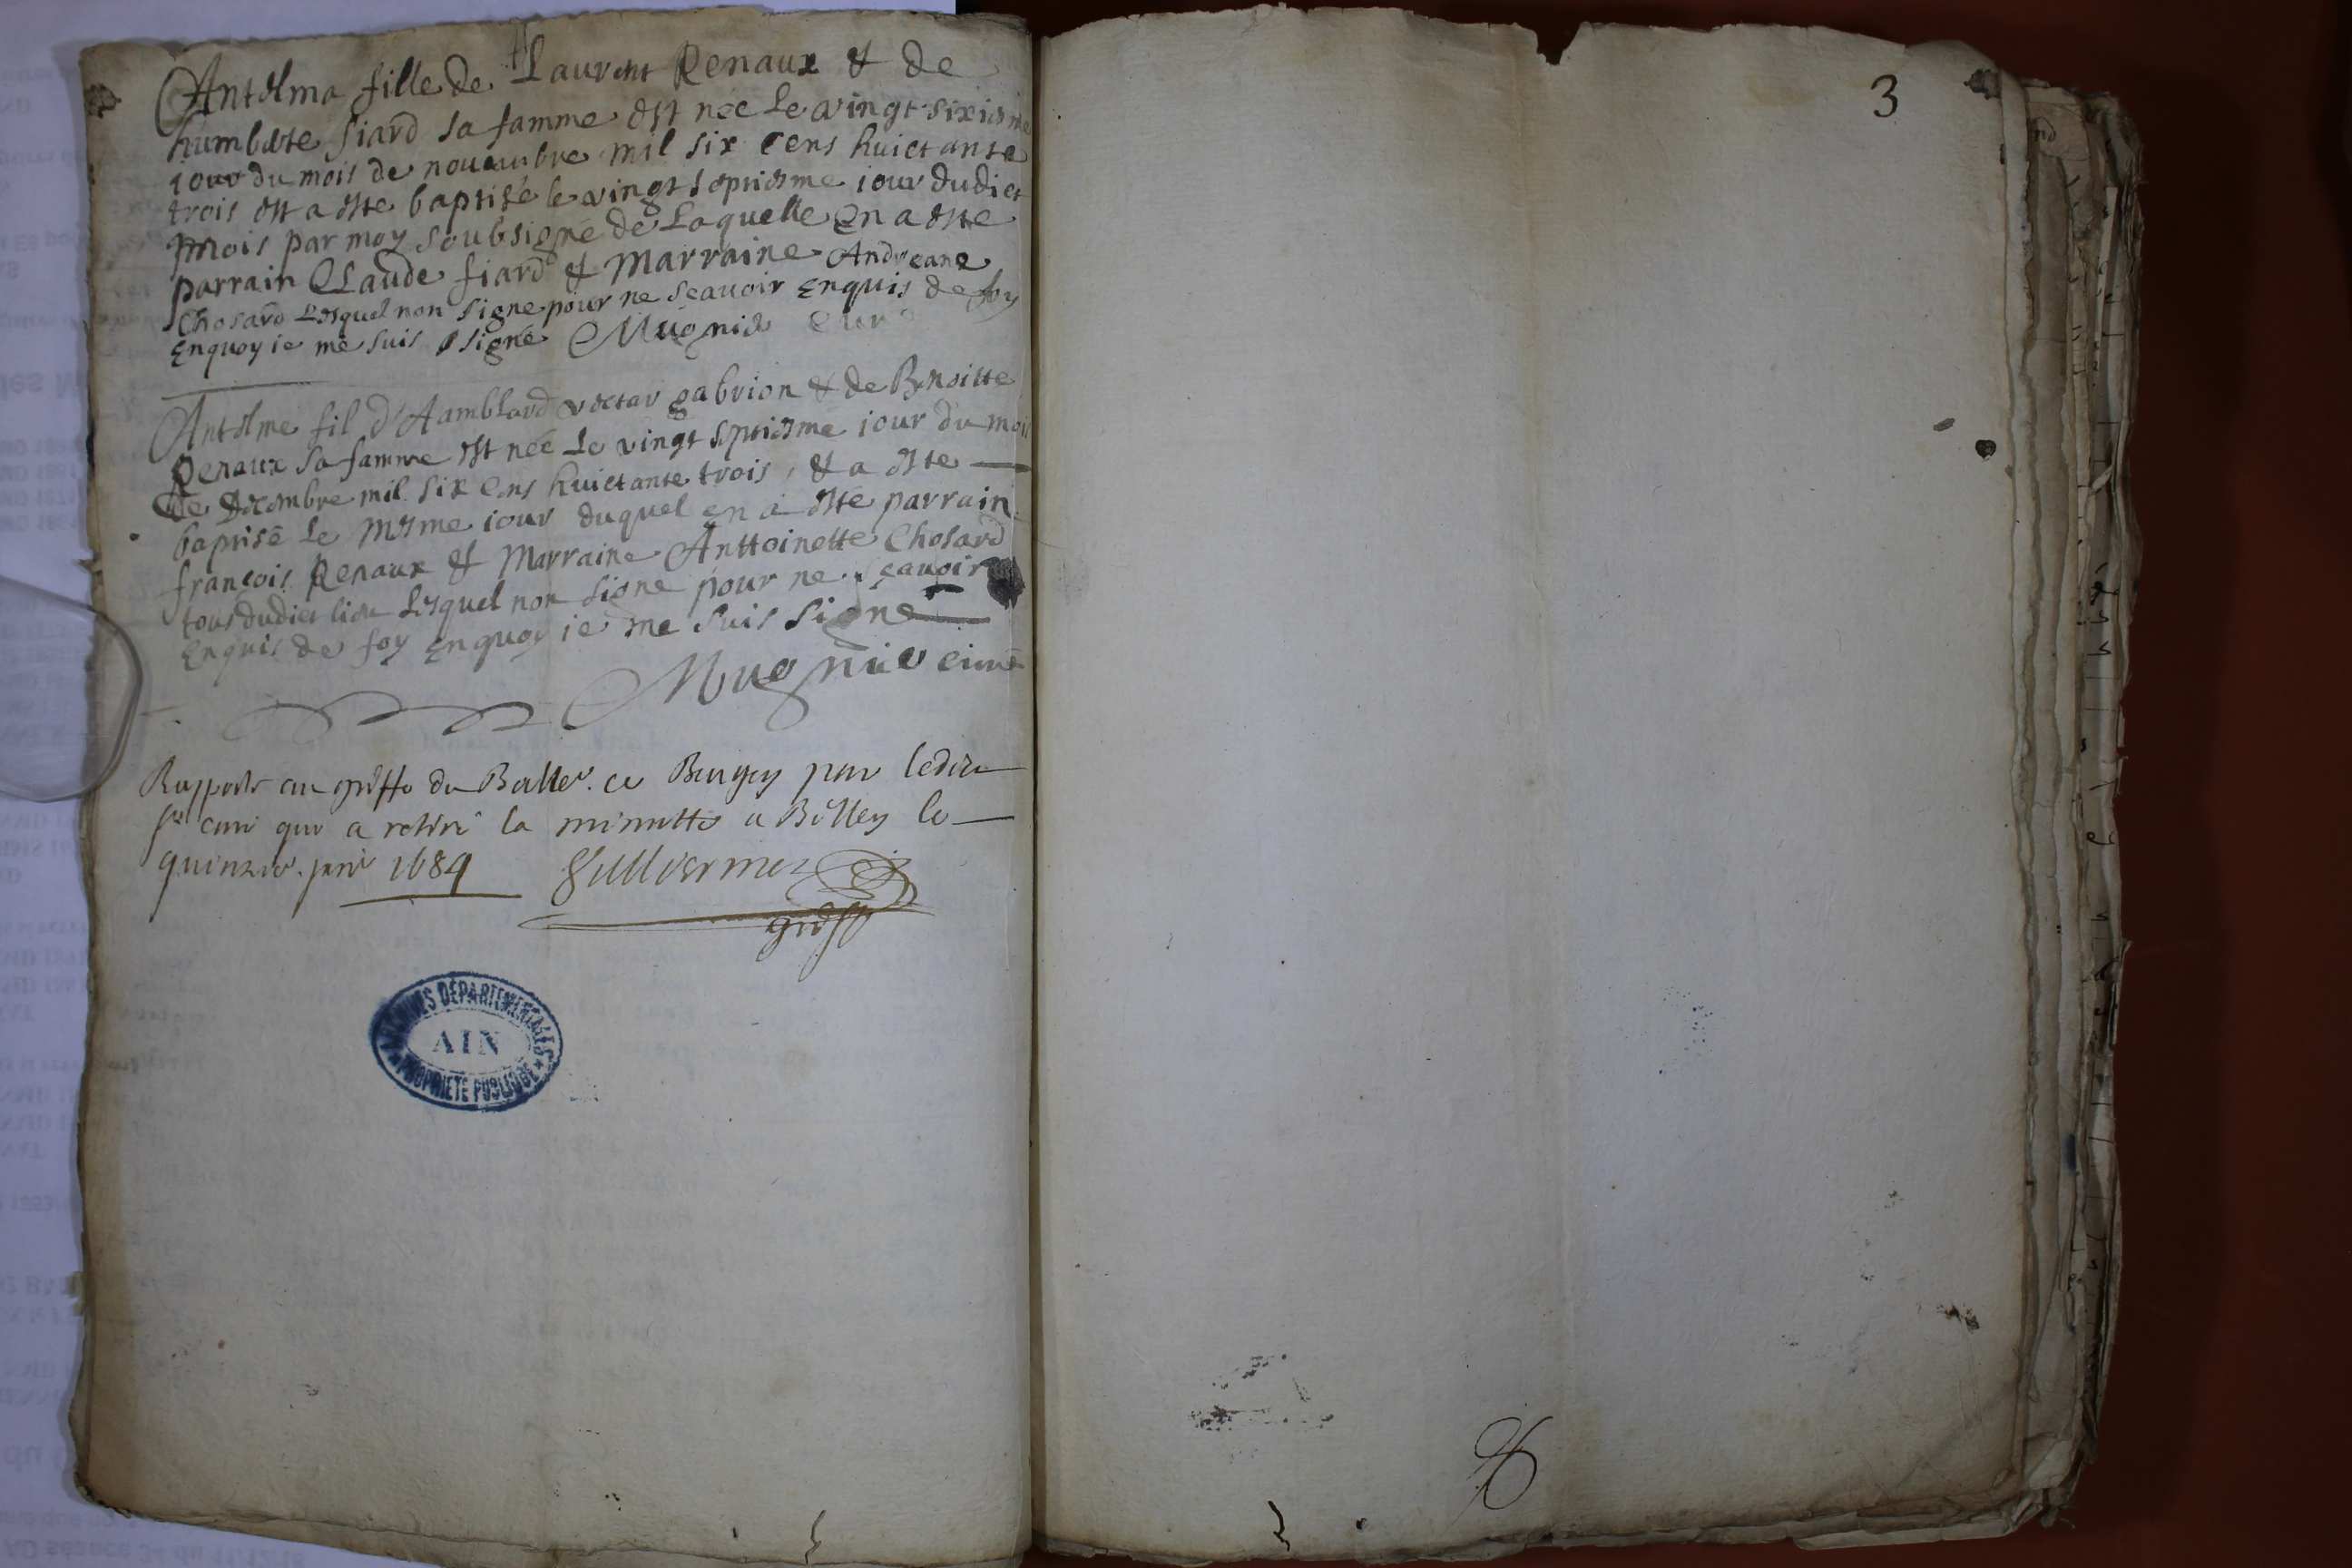 Antelma fille de Laurent Renaux & de
humberte fiard sa famme est née Le vingt sixiesme
iour du mois de nouembre mil six cens huictante
trois est a esté baptisé le vingt septiesme iour dudict
mois par moy soubsigné de Laquelle en a esté
parrain Claude fiard & Marraine Andreane
Chosard Lesquel non signe pour ne sçauoir enquis de foy
Enquoy ie me suis signé Mugnier curé
Antelme fil d'Aamblard gabrion & de Benoitte
Renaux sa famme est née Le vingt septiesme iour du mois
de Decembre mil six cens huictante trois, & a esté
baptisé le mesme iour duquel en a esté parrain
francois Renaux & Marraine Anttoinette Chosard
tous dudict lieu Lesquel non signe pour ne sçauoir
Enquis de foy Enquoy ie me suis signé
Mugnier curé
Rapporté au greffe du Balle. de Bugey par ledit
sr curé qui a retiré la minutte a Belley le
quinzie. janr 1684 Guilliermet
greff
ARCHIVES DÉPARTEMENTALES
AIN
PROPRIÉTÉ PUBLIQUE
3